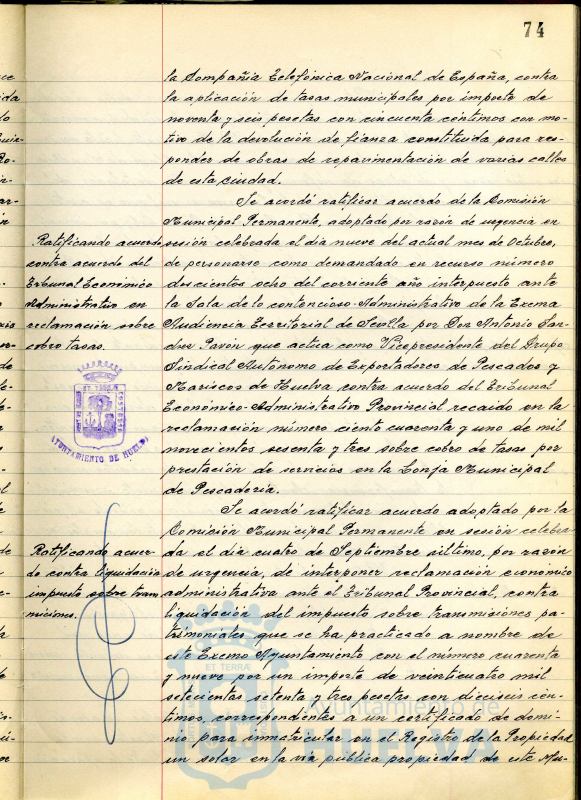 74
la Compañia Telefónica Nacional de España, contra
la aplicación de tasas municipales por importe de
noventa y seis pesetas con cincuenta céntimos con mo-
tivo de la devolución de fianza constituida para res-
ponder de obras de repavimentación de varias calles
de esta ciudad.
Se acordó ratificar acuerdo de la Comisión
Municipal Permanente, adoptado por razón de urgencia en
sesión celebrada el día nueve del actual mes de Octubre,
de personarse como demandado en recurso número
doscientos ocho del corriente año interpuesto ante
la Sala de lo contencioso-Administrativo de la Excma
Audiencia Territorial de Sevilla por Don Antonio
Pavón que actua como Vicepresidente del Grupo
Sindical Autónomo de Exportadores de Pescados y
Mariscos de Huelva contra acuerdo del Tribunal
Económico-Administrativo Provincial recaido en la
reclamación número ciento cuarenta y uno de mil
novecientos sesenta y tres sobre cobro de tasas por
prestación de servicios en la Lonja Municipal
de Pescaderia.
Se acordó ratificar acuerdo adoptado por la
Comisión Municipal Permanente en sesión celebra-
da el día cuatro de Septiembre último, por razón
de urgencia, de interponer reclamación económico
administrativa ante el Tribunal Provincial, contra
liquidación del impuesto sobre transmisiones pa-
trimoniales que se ha practicado a nombre de
este Excmo Ayuntamiento con el número cuarenta
y nueve por un importe de veinticuatro mil
setecientas setenta y tres pesetas con dieciseis cén-
timos, correspondientes a un certificado de domi-
nio para inmatricular en el Registro de la Propiedad
un solar en la vía pública propiedad de este Mu-
Ratificando acuerdo
contra acuerdo del
Tribunal Económico
Administrativo en
reclamación sobre
cobro tasas.
AYUNTAMIENTO DE HUELVA
Ratificando acuer-
do contra liquidación
impuesto sobre trans
misiones.
ET TERRÆ
Ayuntamiento de
HUELVA